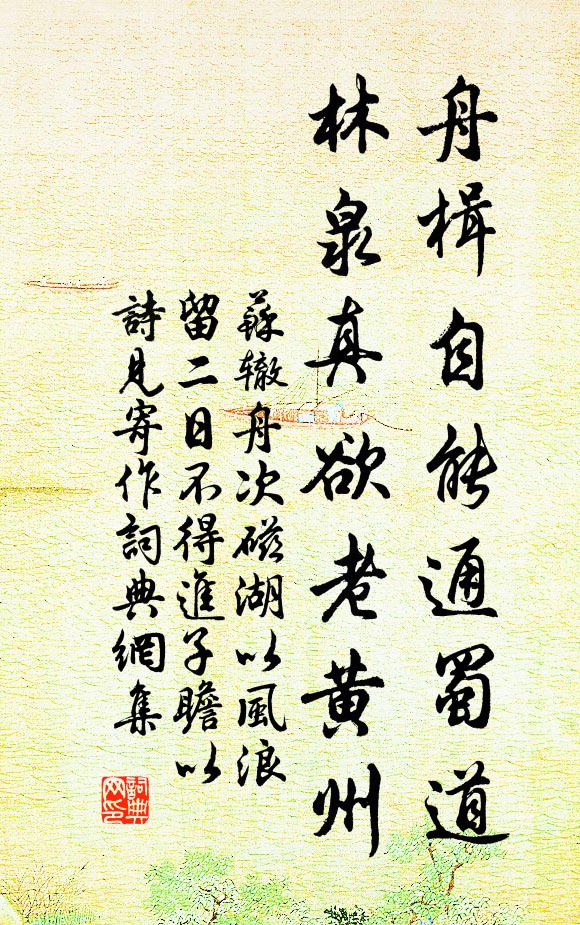 舟楫自能通蜀道
林泉真欲老黄州
蘇辙舟次磁湖以風浪
留二日不得進子瞻以
詩見寄作詞典網集
詞典
网印